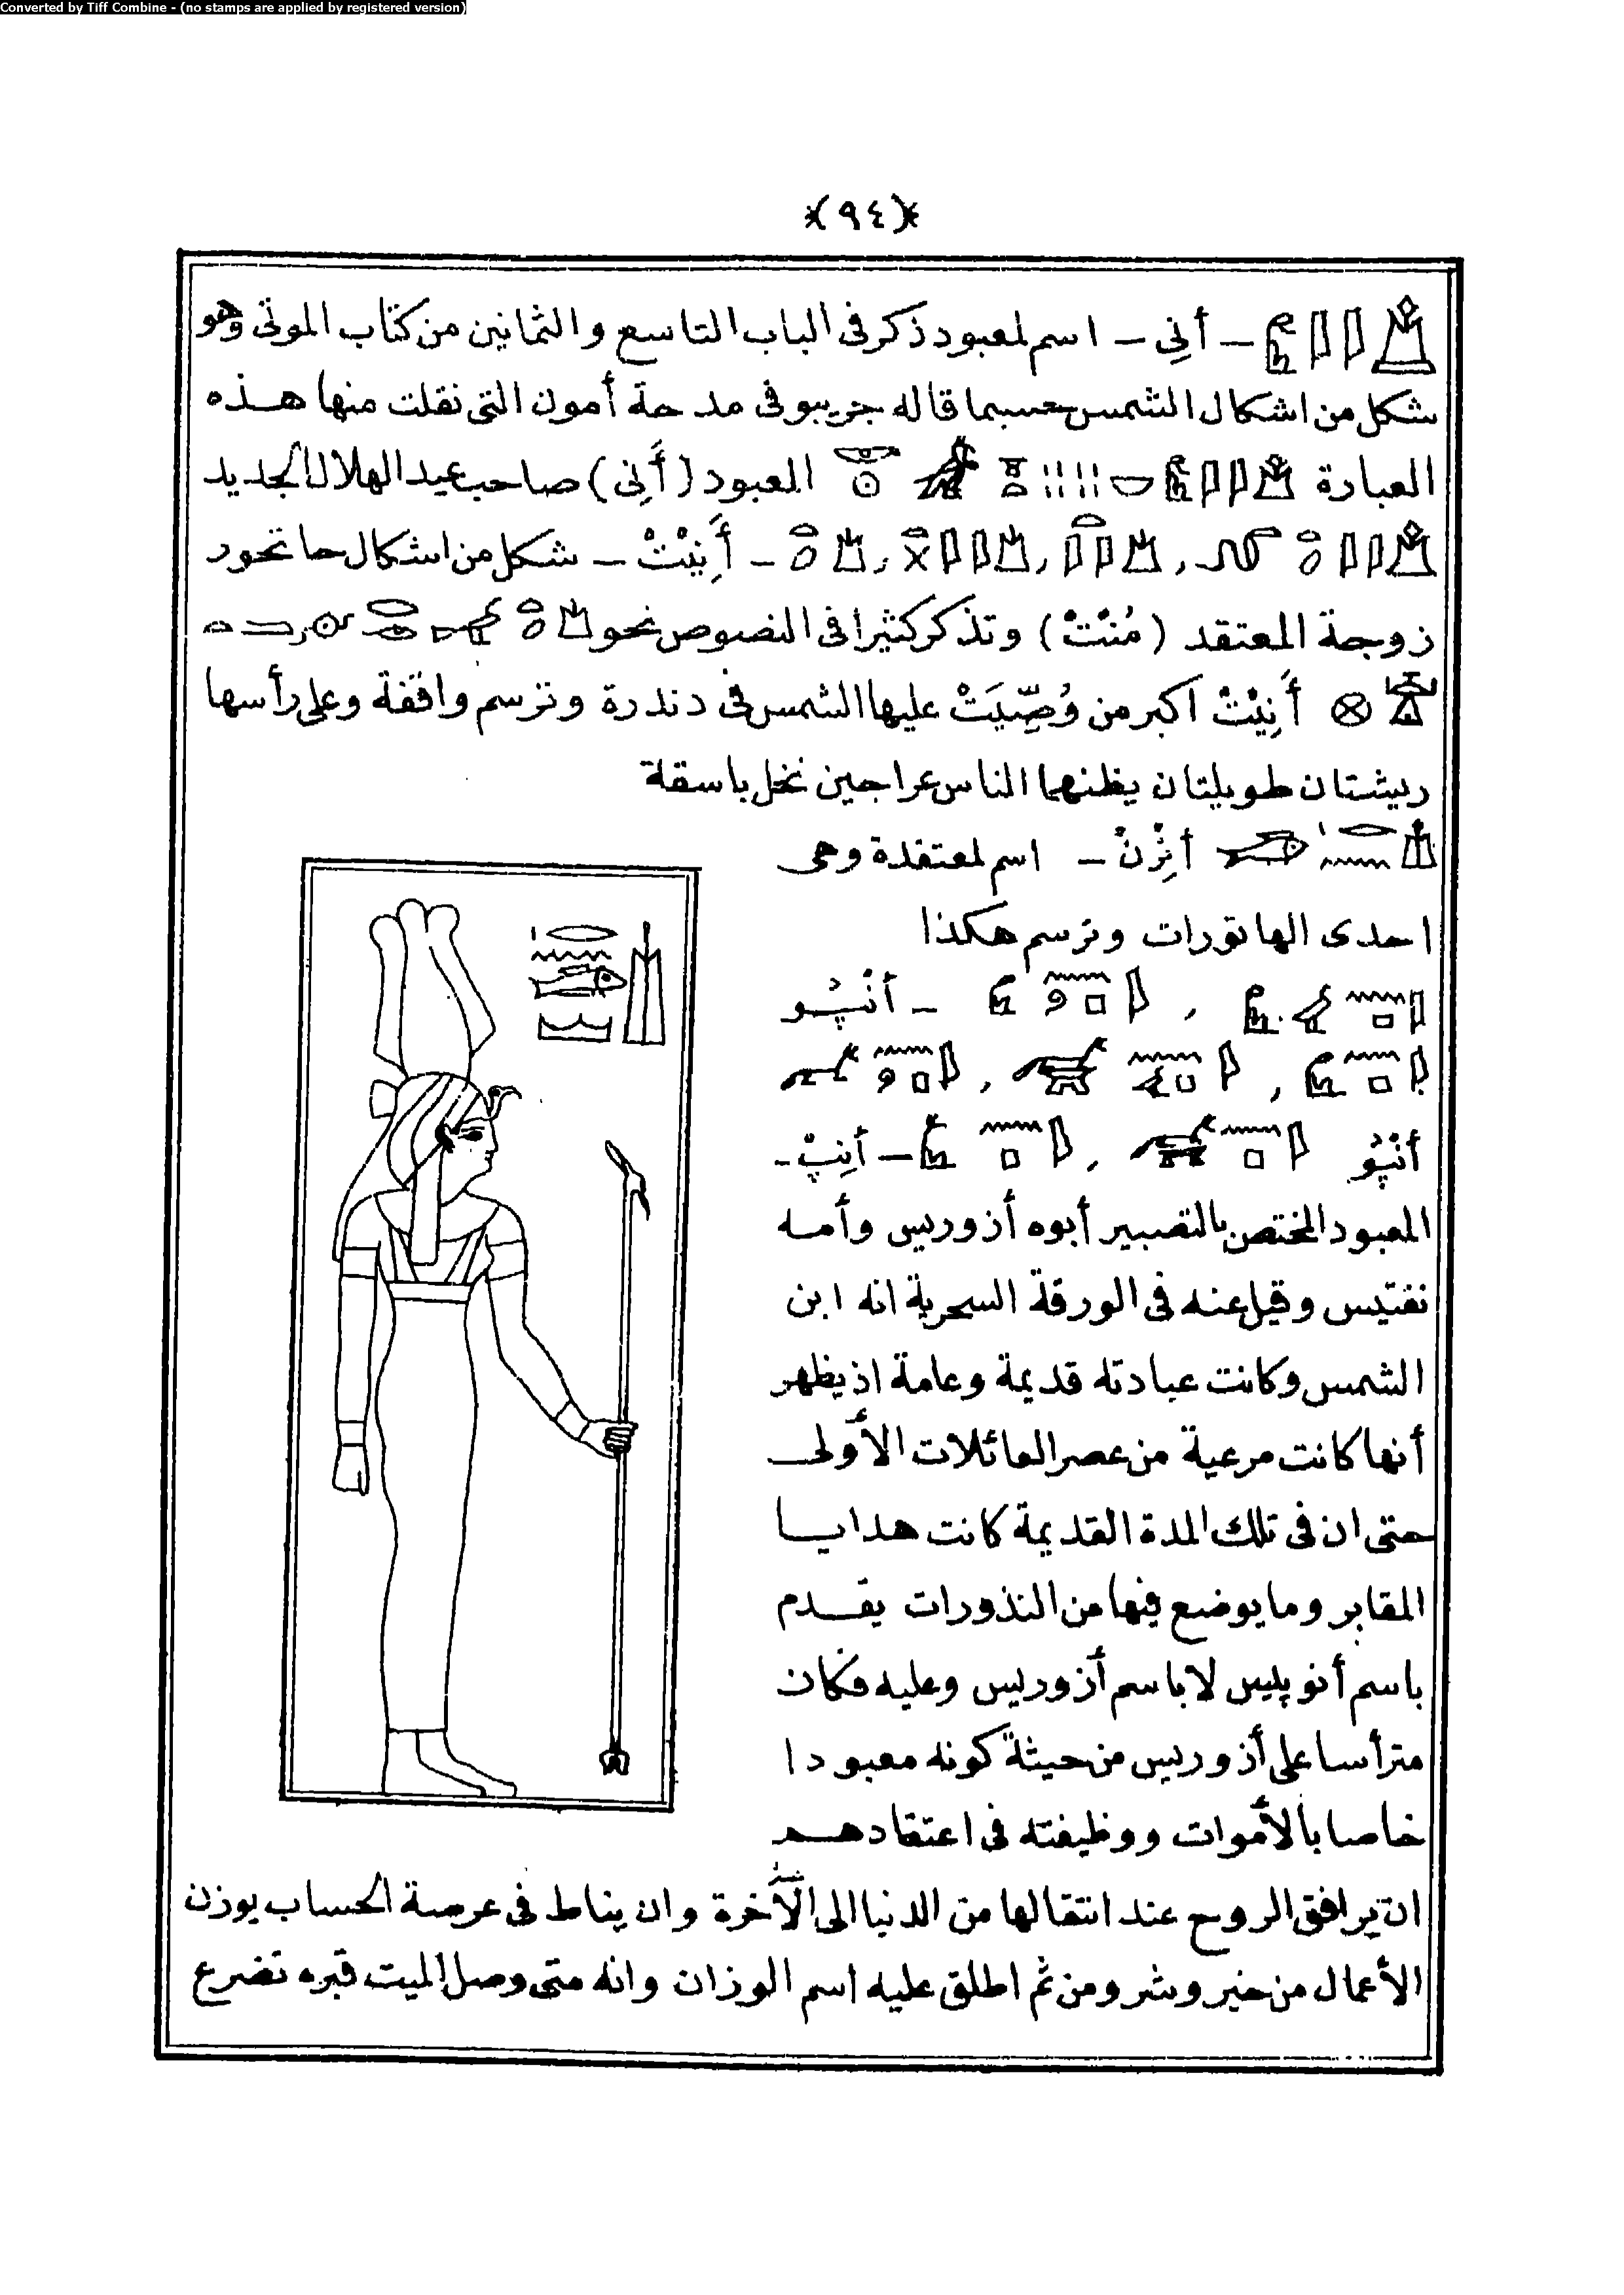 Converted by Tiff Combine - (no stamps are applied by registered version)
(٩٤)
– أنِى – اسم لمعبود ذكر فى الباب التاسع والثمانين من كتاب الموتى وهو
شكل من اشكال الشمس حسبما قاله جريبو فى مدحة أمون التى نقلت منها هذه
العبارة المعبود (أَنِى) صاحب عيد الهلال الجديد
– أَنِيْتْ – شكل من اشكال حاتحور
زوجة المعتقد (مُنْتْ) وتذكر كثيرا فى النصوص نحو
أَنِيْتْ اكبر من وُصِّيَتْ عليها الشمس فى دندرة وترسم واقفة وعلى رأسها
ريشتان طويلتان يظنهما الناس عراجين نخل باسقة
– اسم لمعتقدة وهى
احدى الهاتورات وترسم هكذا
– أنْپُو
أنْپُو – أنِپْ –
المعبود المختص بالتصبير أبوه أزوريس وأمه
نفتيس وقيل عنه فى الورقة السحرية انه ابن
الشمس وكانت عبادته قديمة وعامة اذ يظهر
أنها كانت مرعية من عصر العائلات الأولى
حتى ان فى تلك المدة القديمة كانت هدايا
المقابر وما يوضع فيها من النذورات يقدم
باسم أنوپيس لا باسم أزوريس وعليه فكان
مترأسا على أزوريس من حيثة كونه معبودا
خاصا بالأموات ووظيفته فى اعتقادهم
ان يرافق الروح عند انتقالها من الدنيا الى الآخرة وان يناط فى عرصة الحساب بوزن
الأعمال من خير وشر ومن ثم اطلق عليه اسم الوزان وانه متى وصل الميت قبره تضرع